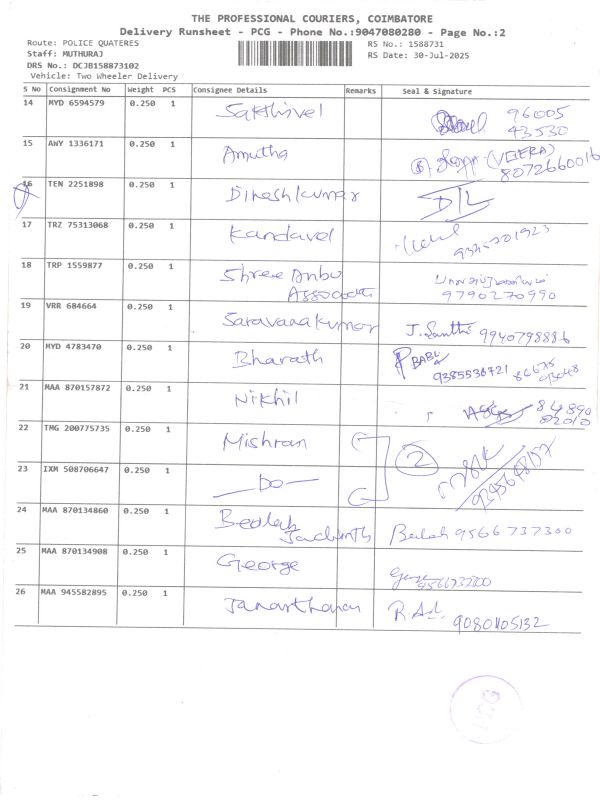 THE PROFESSIONAL COURIERS, COIMBATORE
Delivery Runsheet - PCG - Phone No.:9047080280 - Page No.:2
Route: POLICE QUATERES RS No.: 1588731
Staff: MUTHURAJ RS Date: 30-Jul-2025
DRS No.: DCJB158873102
Vehicle: Two Wheeler Delivery
S No Consignment No Weight PCS Consignee Details Remarks Seal & Signature
14 MYD 6594579 0.250 1 Sakthivel 96005 43530
15 AWY 1336171 0.250 1 Amutha (VEERA) 8072660016
16 TEN 2251898 0.250 1 Dineshkumar
17 TRZ 75313068 0.250 1 Kandavel
18 TRP 1559877 0.250 1 Shree Anbu Associate 9790270990
19 VRR 684664 0.250 1 Saravanakumar J. Santhi 9940798886
20 MYD 4783470 0.250 1 Bharath BABU 9385536721
21 MAA 870157872 0.250 1 Nikhil 84890 82010
22 TMG 200775735 0.250 1 Mishran 2
23 IXM 508706647 0.250 1 —Do—
24 MAA 870134860 0.250 1 Beulah 9566737300
25 MAA 870134908 0.250 1 George
26 MAA 945582895 0.250 1 Janarthanan 9080405132
PCG